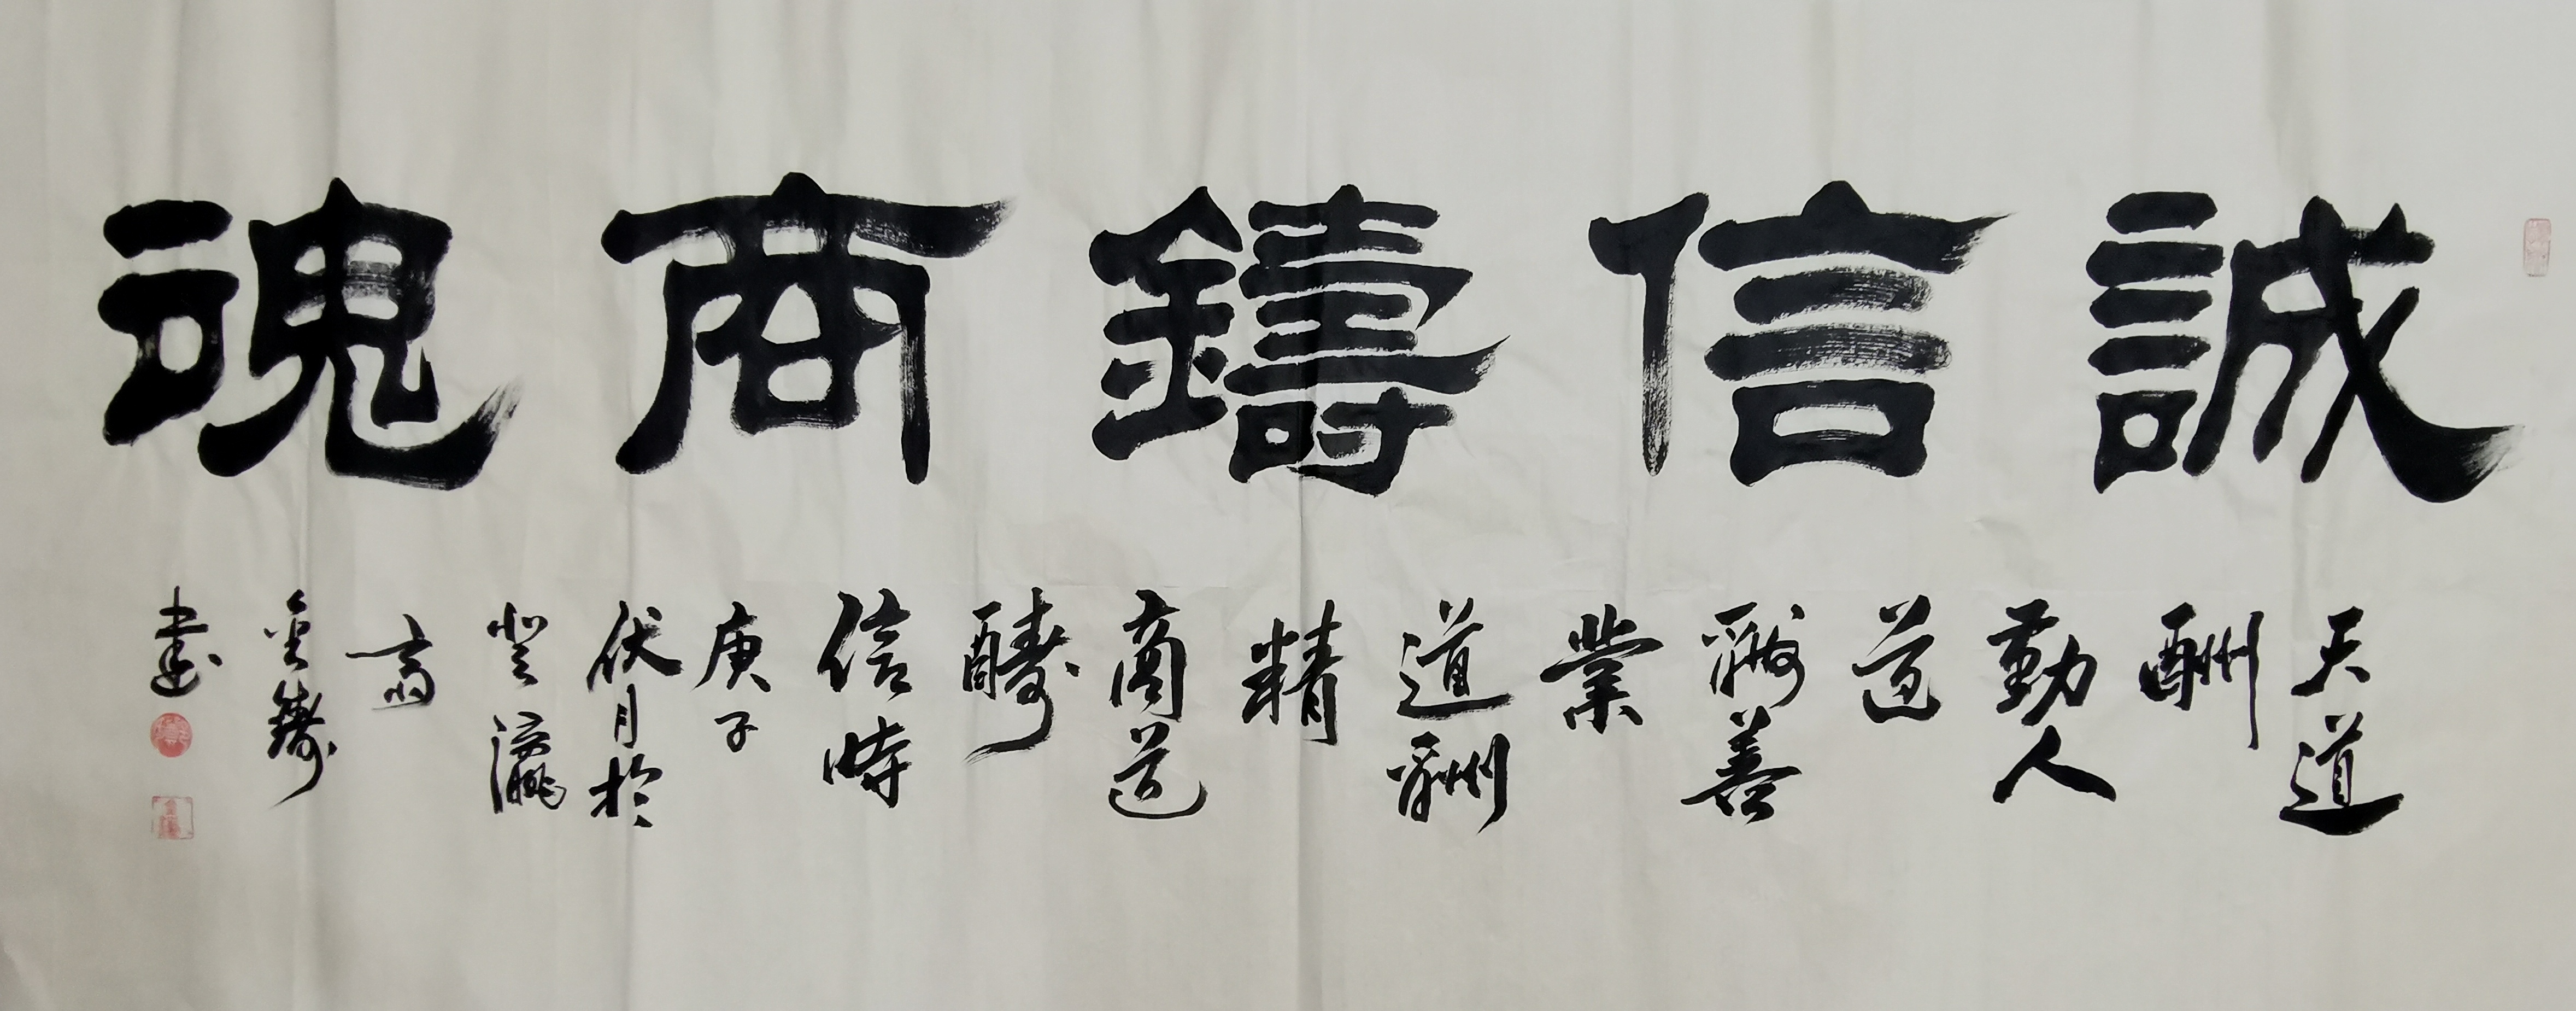 誠信鑄商魂
天道
酬
勤人
道
酬善
業
道酬
精
商道
酬
信時
庚子
伏月於
登瀛
斎
金鑄
書